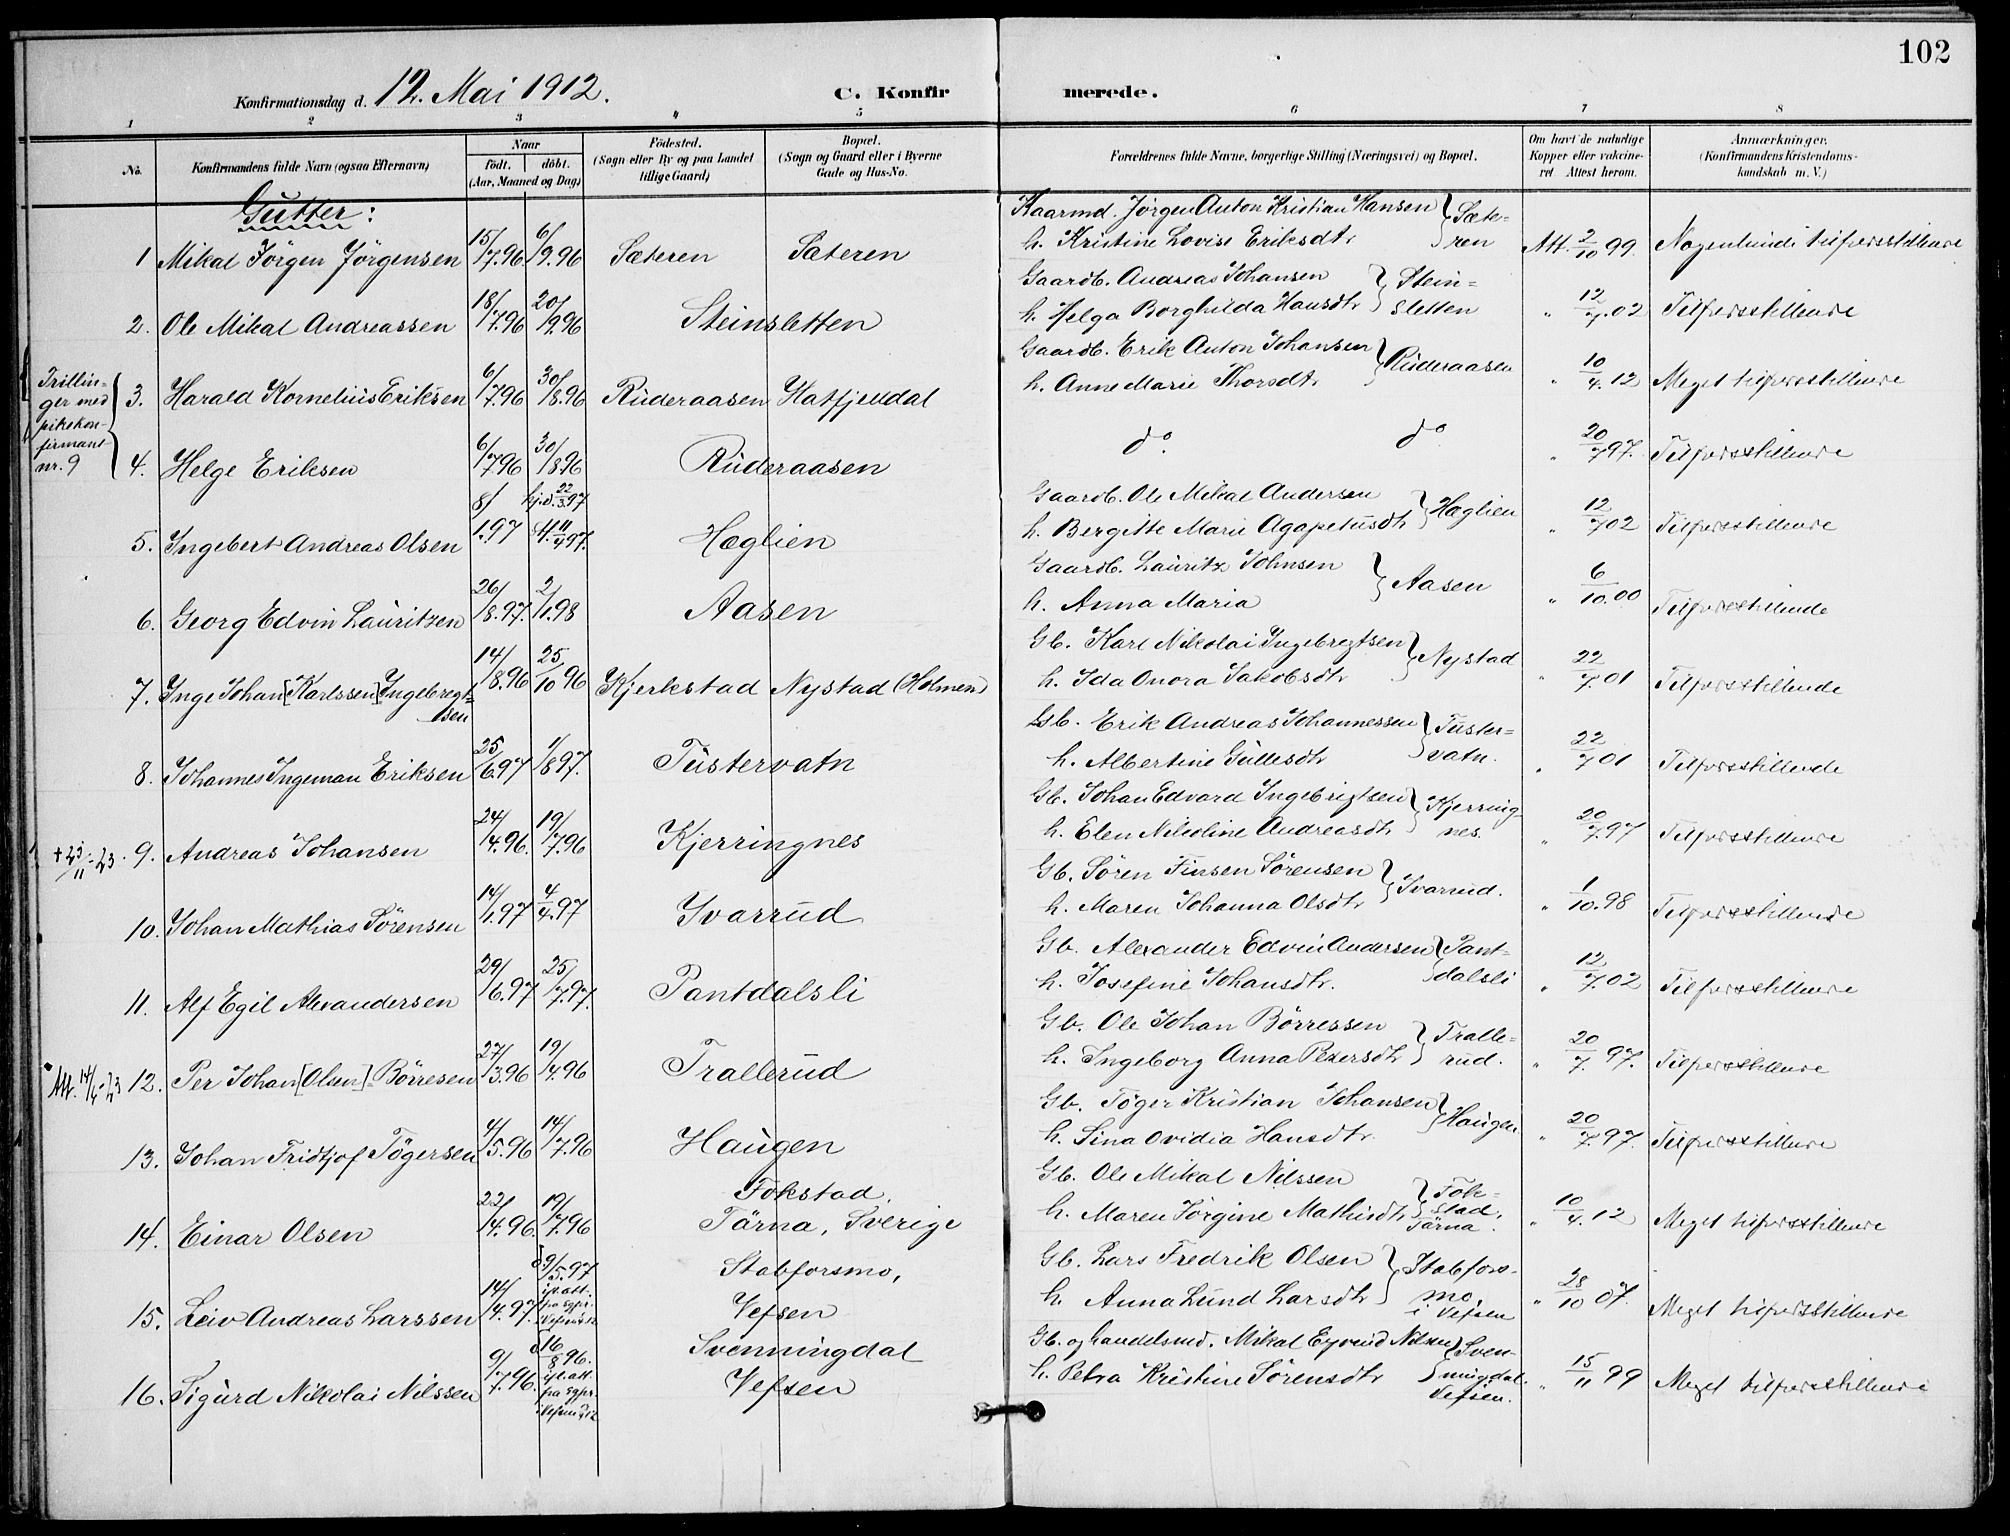 102
Konfirmationsdag d. 12. Mai 1912. C. Konfirmerede.
1 2 3 4 5 6 7 8
No. Konfirmandens fulde Navn (ogsaa Efternavn) Naar født. døbt. (Aar, Maaned og Dag) Fødested. (Sogn eller By og paa Landet tillige Gaard) Bopæl. (Sogn og Gaard eller i Byerne Gade og Hus-No. Forældrenes fulde Navne, borgerlige Stilling (Næringsvei) og Bopæl. Om havt de naturlige Kopper eller vakcineret Attest herom. Anmærkninger. (Konfirmandens Kristendomskundskab m. V.)
Gutter:
1 Mikal Jörgen Jörgensen 15/7.96 6/9.96 Sæteren Sæteren Kaarmd. Jørgen Anton Kristian Hansen h. Kristine Lovise Eriksdtr } Sæteren Att. 2/10 99. Nogenlunde tilfredsstillende
2. Ole Mikal Andreassen 18/7.96 20/9.96 Steinsletten Gaardb. Andreas Johansen h. Helga Borghilda Hansdtr } Steinsletten " 12/7.02 Tilfredsstillende
Trillinger med pikekonfirmant nr. 9 {
3. Harald Kornelius Eriksen 6/7.96 30/8.96 Ruderaasen Hatfjeldal Gaardb. Erik Anton Johansen h. Anne Marie Thorsdtr } Ruderaasen " 10/4.12 Meget tilfredsstillende
4. Helge Eriksen 6/7.96 30/8.96 Ruderaasen do. do " 20/7 97. Tilfredsstillende
5. Ingebert Andreas Olsen 8/1.97 hj.d. 22/3.97 st. 11/7 97. Hæglien Gaardb. Ole Mikal Andersen h. Bergitte Marie Agapetusdtr } Hæglien " 12/7 02 Tilfredsstillende
6. Georg Edvin Lauritzen 26/8.97. 2/1.98 Aasen Gaardb. Lauritz Johnsen h. Anna Maria } Aasen " 6/10.00 Tilfredsstillende
7. Inge Johan [Karlssen] Ingebregtsen 14/8.96 25/10 96 Kjerkstad Nystad (Holmen) Gb. Karl Nikolai Ingebregtsen h. Ida Onora Jakobsdtr } Nystad " 22/7.01 Tilfredsstillende
8. Johannes Ingeman Eriksen 25/6.97 1/8 97. Tustervatn Gb. Erik Andreas Johannessen h. Albertine Gullesdtr } Tustervatn. " 22/7 01 Tilfredsstillende
+ 23/11-23. 9. Andreas Johansen 24/4.96. 19/7.96 Kjerringnes Gb. Johan Edvard Ingebrigtsen h. Elen Nikoline Andreasdtr } Kjerringnes. " 20/7.97 Tilfredsstillende
10. Johan Mathias Sörensen 14/1.97 4/4.97 Ivarrud Gb. Sören Finsen Sörensen h. Maren Johanna Olsdtr } Ivarrud. " 1/10.98 Tilfredsstillende
11. Alf Egil Alexandersen 29/6.97 25/7.97. Pantdalsli Gb. Alexander Edvin Andersen h. Josefine Johansdtr. } Pantdalsli " 12/7.02 Tilfredsstillende
Att. 14/4-23 12. Per Johan [Olsen] Börresen 27/3.96 19/4.96 Trallerud Gb. Ole Johan Börressen h. Ingeborg Anna Petersdtr } Trallerud. " 20/7. 97. Tilfredsstillende
13. Johan Fridtjof Tögersen 4/5.96 14/7.96 Haugen Gb. Töger Kristian Johansen h. Sina Ovidia Hansdtr. } Haugen " 20/7.97. Tilfredsstillende
14. Einar Olsen 22/4.96. 19/7.96 Fokstad, Tärna, Sverige Gb. Ole Mikal Nilssen h. Maren Jörgine Mathisdtr } Fokstad, Tärna. " 10/4.12 Meget tilfredsstillende
15. Leiv Andreas Larssen 14/4.97. d 9/5.97 ifl. att. fra sgpr. i Vefsn Stabforsmo, Vefsen Gb. Lars Fredrik Olsen h. Anna Lund Larsdtr } Stabforsmo, i Vefsen " 28/10 07. Meget tilfredsstillende
16. Sigurd Nikolai Nilssen 9/7.96. d 16/8 96. ifl. att. fra sgpr. i Vefsn Svenningdal Vefsen Gb. og handelsmd. Mikal Eyvind Nilsen h. Petra Kristine Sörensdtr } Svenningdal. Vefsen. " 15/11 99 Meget tilfredsstillende